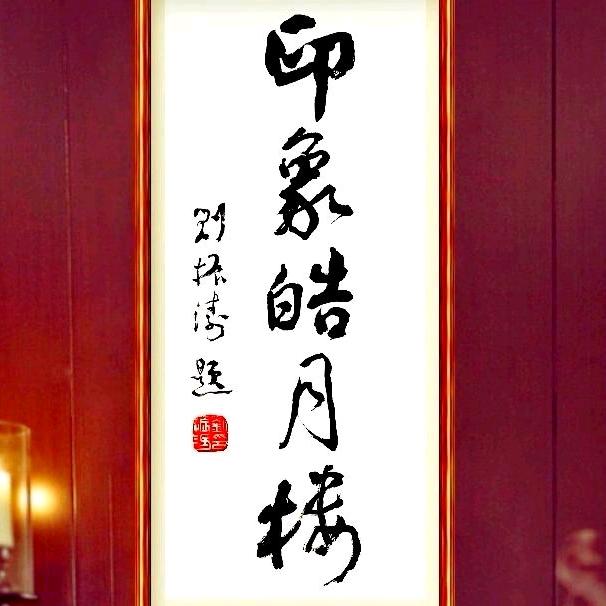 印象皓月楼
刘振涛题